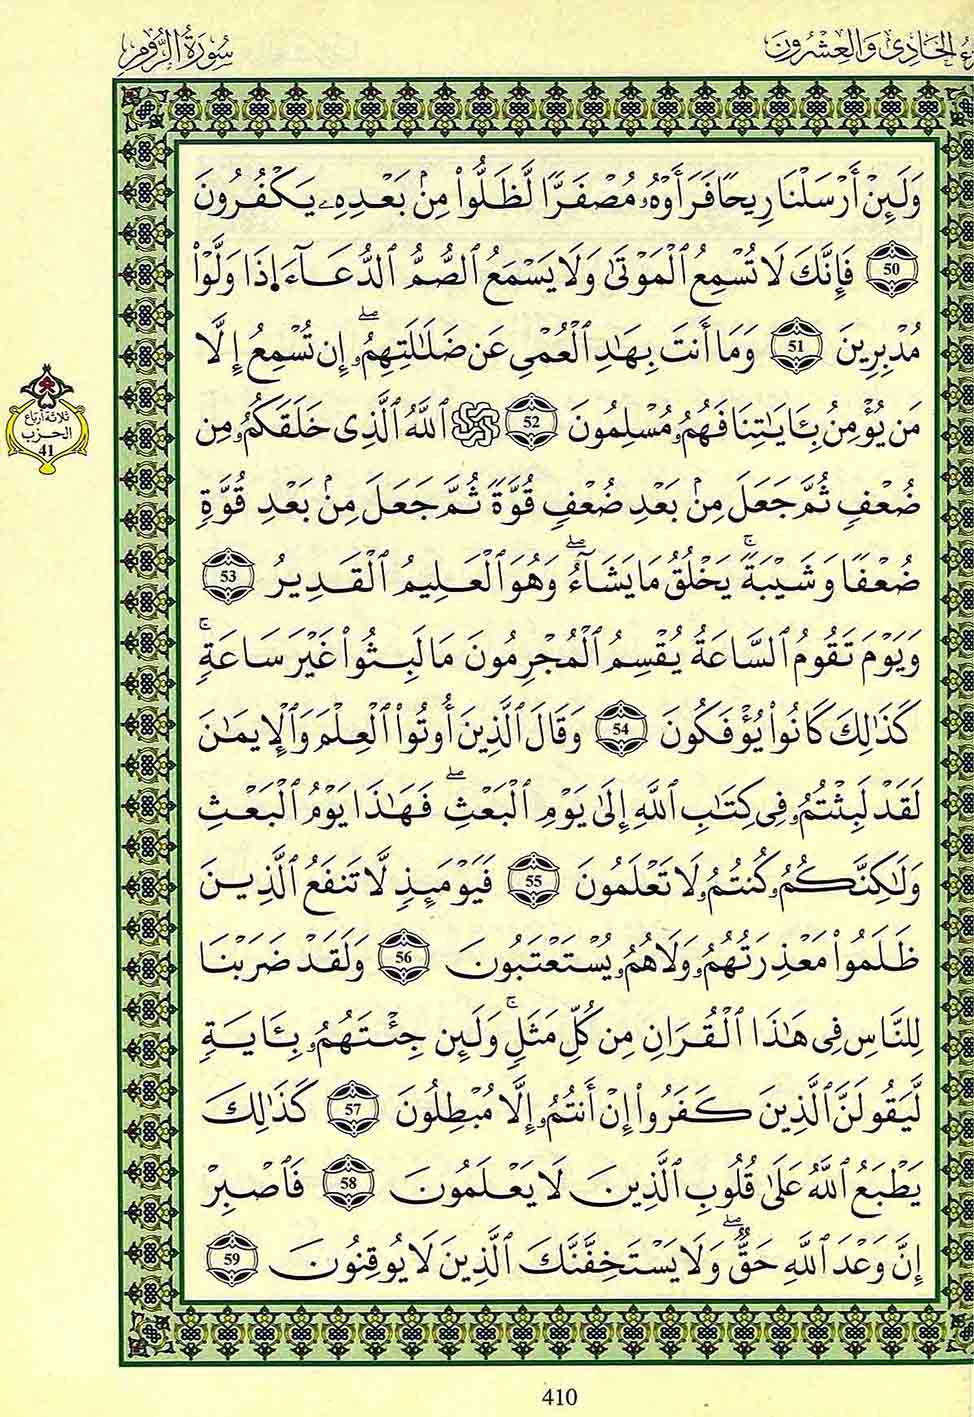 سُورَةُ الرُّومِ
الحَادِي وَالعِشْرُونَ
وَلَئِنْ أَرْسَلْنَا رِيحًا فَرَأَوْهُ مُصْفَرًّا لَّظَلُّواْ مِنۢ بَعْدِهِۦ يَكْفُرُونَ
50 فَإِنَّكَ لَا تُسْمِعُ اُلْمَوْتَىٰ وَلَا يَسْمَعُ اُلصُّمُّ اُلدُّعَآءَ اِ۪ذَا وَلَّوْاْ
مُدْبِرِينَ 51 وَمَا أَنتَ بِهَٰدِ اِلْعُمْيِ عَن ضَلَٰلَتِهِمُۥٓۖ إِن تُسْمِعُ إِلَّا
مَن يُؤْمِنُ بِـَٔايَٰتِنَا فَهُمُۥ مُسْلِمُونَ 52 ۞ اَللَّهُ اُلَّذِى خَلَقَكُمُۥ مِن
ضُعْفٖ ثُمَّ جَعَلَ مِنۢ بَعْدِ ضُعْفٖ قُوَّةً ثُمَّ جَعَلَ مِنۢ بَعْدِ قُوَّةٖ
ضُعْفًا وَشَيْبَةًۚ يَخْلُقُ مَا يَشَآءُۖ وَهُوَ اَلْعَلِيمُ اُلْقَدِيرُ 53
وَيَوْمَ تَقُومُ اُلسَّاعَةُ يُقْسِمُ اُلْمُجْرِمُونَ مَا لَبِثُواْ غَيْرَ سَاعَةٖۚ
كَذَٰلِكَ كَانُواْ يُؤْفَكُونَ 54 وَقَالَ اَلَّذِينَ أُوتُواْ اُلْعِلْمَ وَالْإِيمَٰنَ
لَقَدْ لَبِثْتُمُۥ فِى كِتَٰبِ اِللَّهِ إِلَىٰ يَوْمِ اِلْبَعْثِۖ فَهَٰذَا يَوْمُ اُلْبَعْثِ
وَلَٰكِنَّكُمُۥ كُنتُمُۥ لَا تَعْلَمُونَ 55 فَيَوْمَئِذٖ لَّا تَنفَعُ اُلَّذِينَ
ظَلَمُواْ مَعْذِرَتُهُمُۥ وَلَا هُمُۥ يُسْتَعْتَبُونَ 56 وَلَقَدْ ضَرَبْنَا
لِلنَّاسِ فِى هَٰذَا اَلْقُرَانِ مِن كُلِّ مَثَلٖۚ وَلَئِن جِئْتَهُمُۥ بِـَٔايَةٖ
لَّيَقُولَنَّ اَلَّذِينَ كَفَرُواْ إِنْ أَنتُمُۥ إِلَّا مُبْطِلُونَ 57 كَذَٰلِكَ
يَطْبَعُ اُللَّهُ عَلَىٰ قُلُوبِ اِلَّذِينَ لَا يَعْلَمُونَ 58 فَاصْبِرْ
إِنَّ وَعْدَ اَللَّهِ حَقٌّۖ وَلَا يَسْتَخِفَّنَّكَ اَلَّذِينَ لَا يُوقِنُونَ 59
ثلاثة أرباع
الحزب
41
410